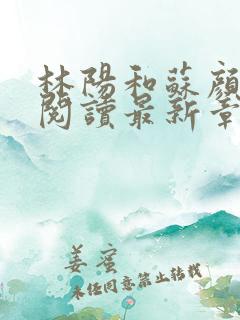 林陽和蘇顏
閱讀最新章
姜蜜
未經同意禁止轉載